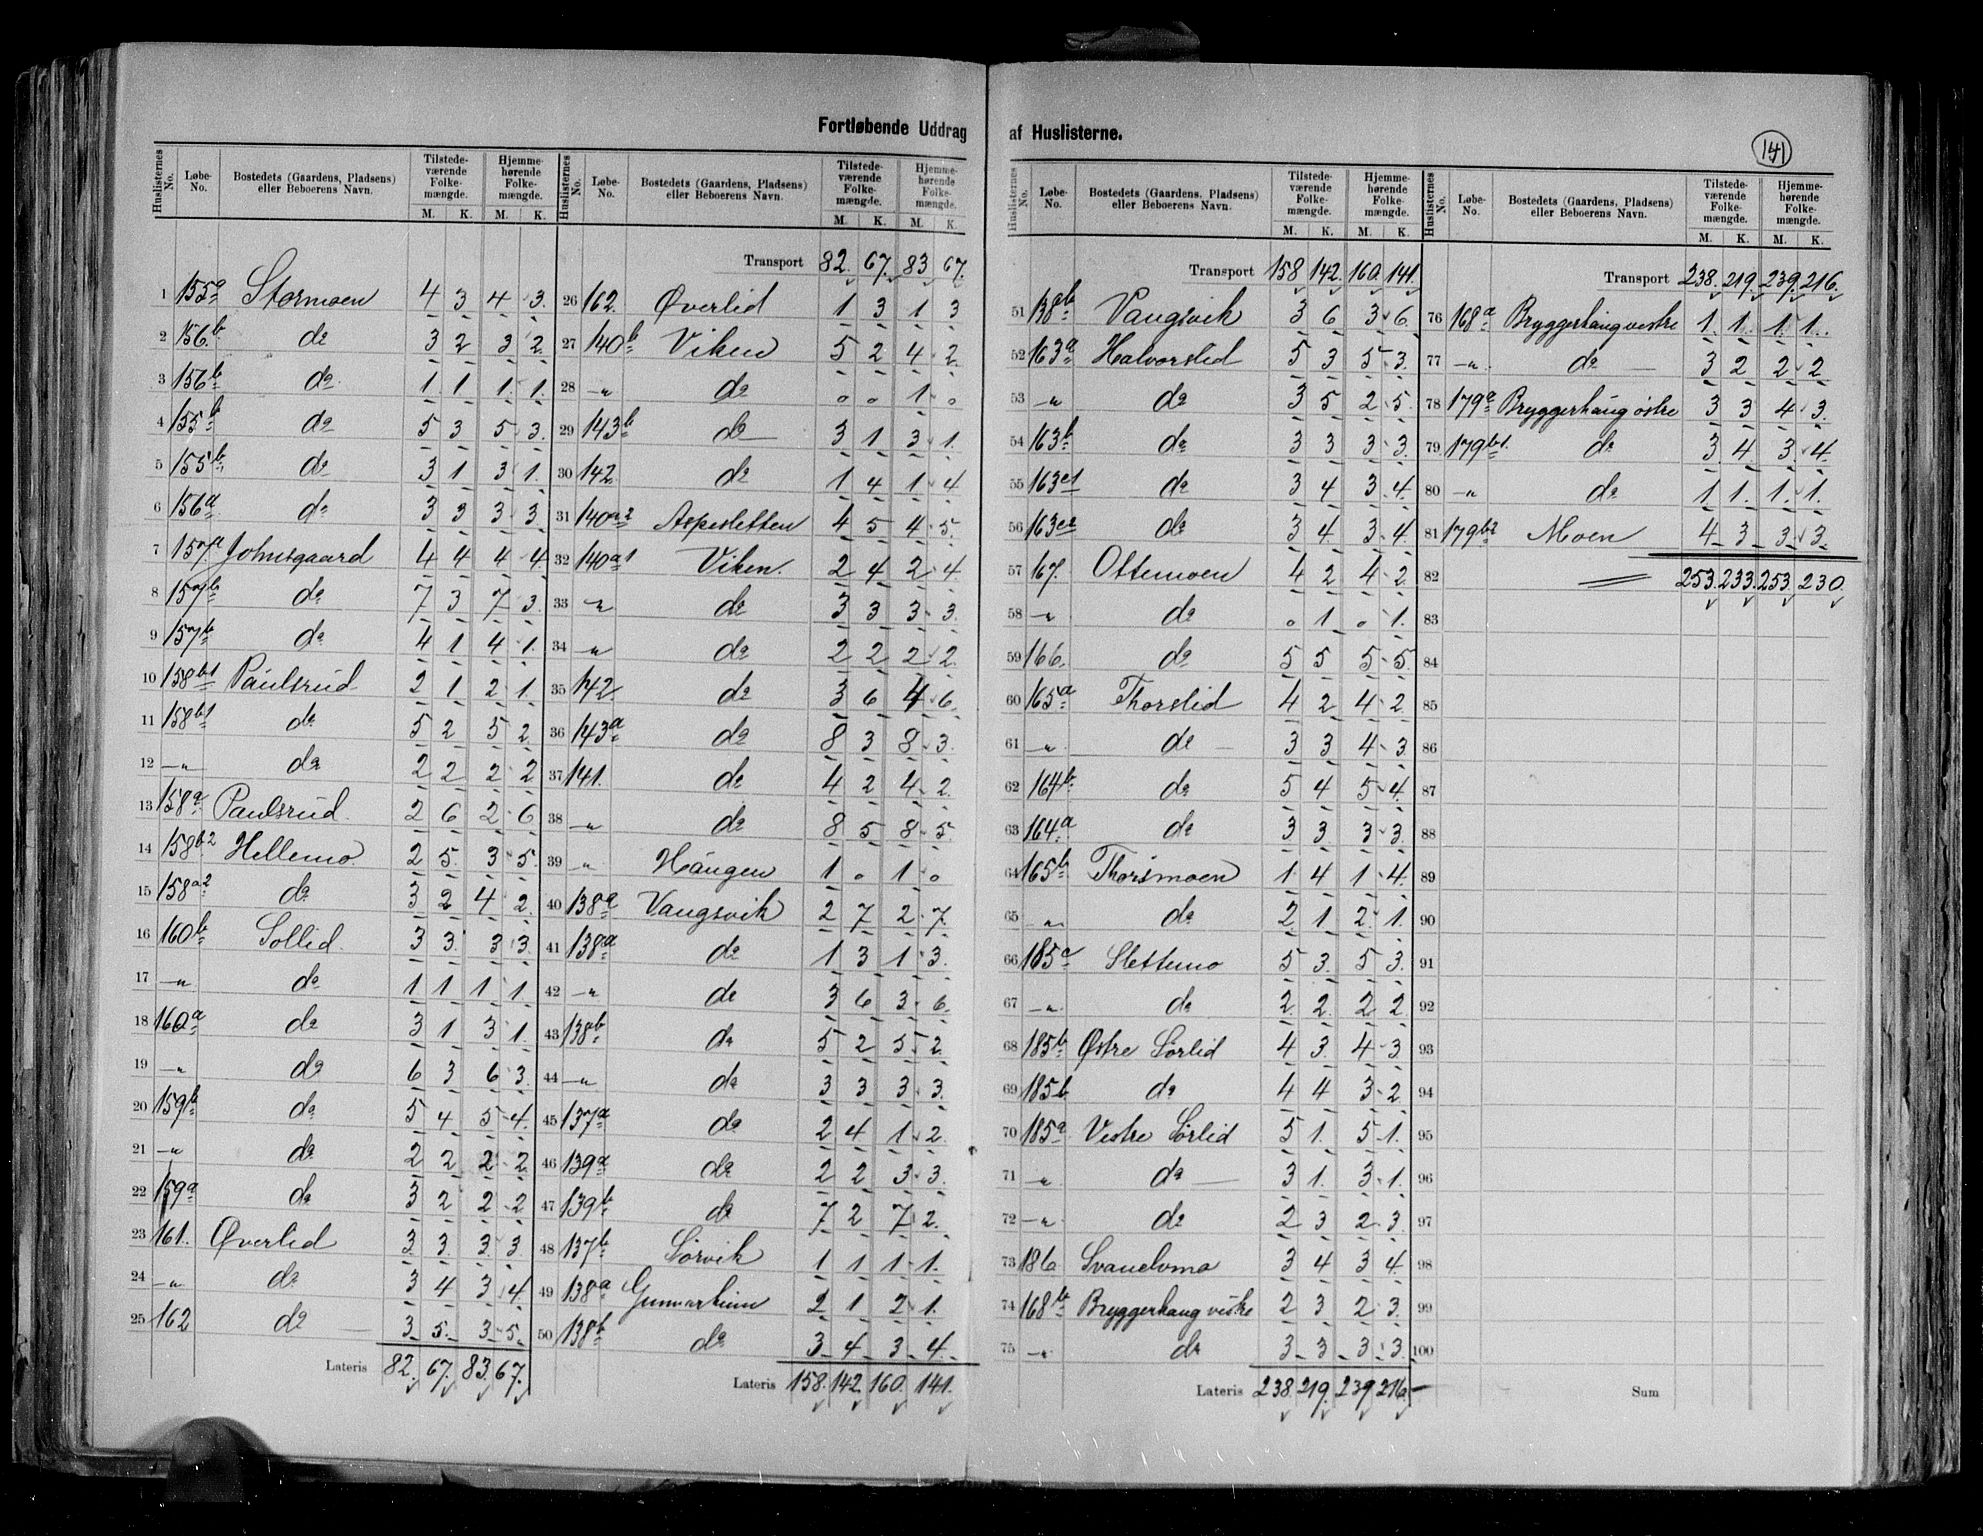 Fortløbende Uddrag af Huslisterne.
141
Huslisternes No. Løbe-No. Bostedets (Gaardens, Pladsens) eller Beboerens Navn. Tilstede-værende Folke-mængde. M. K. Hjemme-hørende Folke-mængde. M. K.
1 155a Stormoen 4 3 4 3.
2 156b do 3 2 3 2.
3 156b do 1 1 1 1.
4 155b do 5 3 5 3.
5 155b do 3 1 3 1.
6 156a do 3 3 3 3.
7 157a Johnsgaard 4 4 4 4
8 157b do 7 3 7 3.
9 157b do 4 1 4 1.
10 158b1 Paulsrud 2 1 2 1.
11 158b1 do 5 2 5 2.
12 -"- do 2 2 2 2
13 158a Paulsrud. 2 6 2 6
14 158b2 Hellemo 2 5. 3 5.
15 158a2 do 3 2 4 2.
16 160b Sollid. 3 3. 3 3.
17 -"- do 1 1 1 1
18 160a do 3 1 3 1.
19 -"- do 6 3 6 3.
20 159b do 5 4 5 4.
21 -"- do 2 2 2 2
22 159a do 3 2 2 2
23 161. Øverlid 3 3. 3 3
24 -"- do 3 4 3 4.
25 162 do 3 5. 3 5.
Lateris 82. 67. 83. 67.
Huslisternes No. Løbe-No. Bostedets (Gaardens, Pladsens) eller Beboerens Navn. Tilstede-værende Folke-mængde. M. K. Hjemme-hørende Folke-mængde. M. K.
Transport 82. 67. 83 67.
26 162. Øverlid 1 3 1 3
27 140b Viken 5 2 4 2.
28 -"- do 0 0 1 0
29 143b do 3 1 3 1.
30 142. do 1 4 1 4
31 140a2 Aspesletten 4 5 4 5.
32 140a1 Viken. 2 4 2 4.
33 -"- do 3 3 3 3.
34 -"- do 2 2 2 2.
35 142. do 3 6 4 6.
36 143a do 8 3 8 3.
37 141. do 4 2 4 2.
38 -"- do 8 5 8 5
39 -"- Haugen 1 0 1 0
40 138a Vangsvik 2 7 2 7.
41 138a do 1 3 1 3.
42 -"- do 3 6 3 6.
43 138b do 5 2 5 2.
44 -"- do 3 3 3 3.
45 137a do 2 4 1 2.
46 139a do 2 2 3 3.
47 139b do 7 2 7 2.
48 137b Sørvik 1 1 1 1.
49 138a Gunnarheim 2 1 2 1.
50 138b do 3 4 3 4.
Lateris 158. 142. 160. 141.
Huslisternes No. Løbe-No. Bostedets (Gaardens, Pladsens) eller Beboerens Navn. Tilstede-værende Folke-mængde. M. K. Hjemme-hørende Folke-mængde. M. K.
Transport 158 142. 160. 141.
51 138b Vangsvik 3 6 3 6.
52 163a Halvorslid 5 3 5 3.
53 -"- do 3 5 2 5.
54 163b do 3 3 3 3.
55 163c1 do 3 4 3 4.
56 163c2 do 3 4 3 4.
57 167. Ottemoen 4 2 4 2.
58 -"- do 0 1 0 1.
59 166. do 5 5 5 5.
60 165a Thorslid 4 2 4 2
61 -"- do 3 3 4 3
62 164b do 5 4 5 4.
63 164a do 3 3 3 3.
64 165b Thorsmoen 1 4 1 4.
65 -"- do 2 1 2 1.
66 185a Slettmo 5 3. 5 3.
67 -"- do 2 2. 2 2
68 185b Østre Sørlid 4 3. 4 3
69 185b do 4 4 3 2
70 185a Vestre Sørlid 5 1. 5 1.
71 -"- do 3 1. 3 1.
72 -"- do 2 3 2 3.
73 186 Svanelvmo 3 4 3 4.
74 168b Bryggerhaug vestre 2 3 2 3.
75 -"- do 3 3 3 3.
Lateris 238. 219. 239. 216.
Huslisternes No. Løbe-No. Bostedets (Gaardens, Pladsens) eller Beboerens Navn. Tilstede-værende Folke-mængde. M. K. Hjemme-hørende Folke-mængde. M. K.
Transport 238. 219. 239. 216.
76 168a Bryggerhaug vestre 1. 1. 1. 1.
77 -"- do 3 2 2 2
78 179a Bryggerhaug østre 3 3 4 3.
79 179b1 do 3 4 3. 4.
80 -"- do 1 1. 1. 1.
81 179b2 Moen 4 3 3 3.
82 253. 233. 253. 230.
83
84
85
86
87
88
89
90
91
92
93
94
95
96
97
98
99
100
Sum